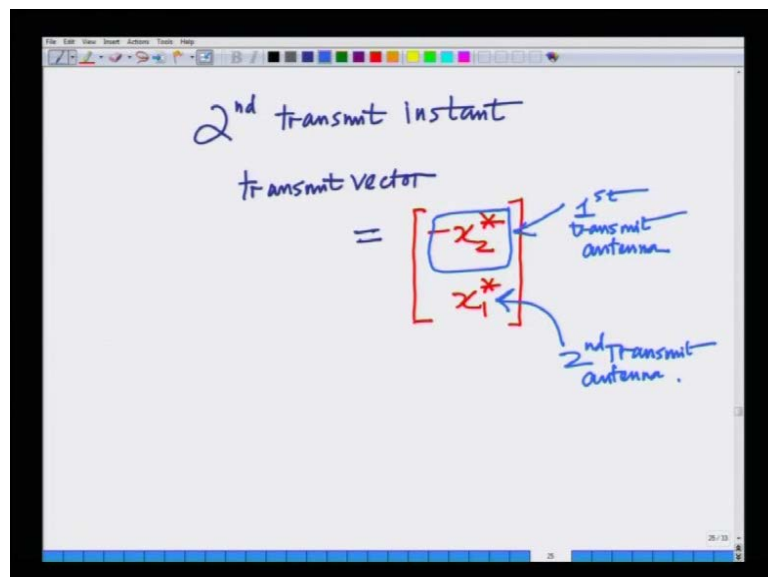 File Edit View Insert Actions Tools Help
2nd transmit instant
transmit vector
= [ -x2* x1* ]
1st transmit antenna
2nd Transmit antenna.
25/33
25